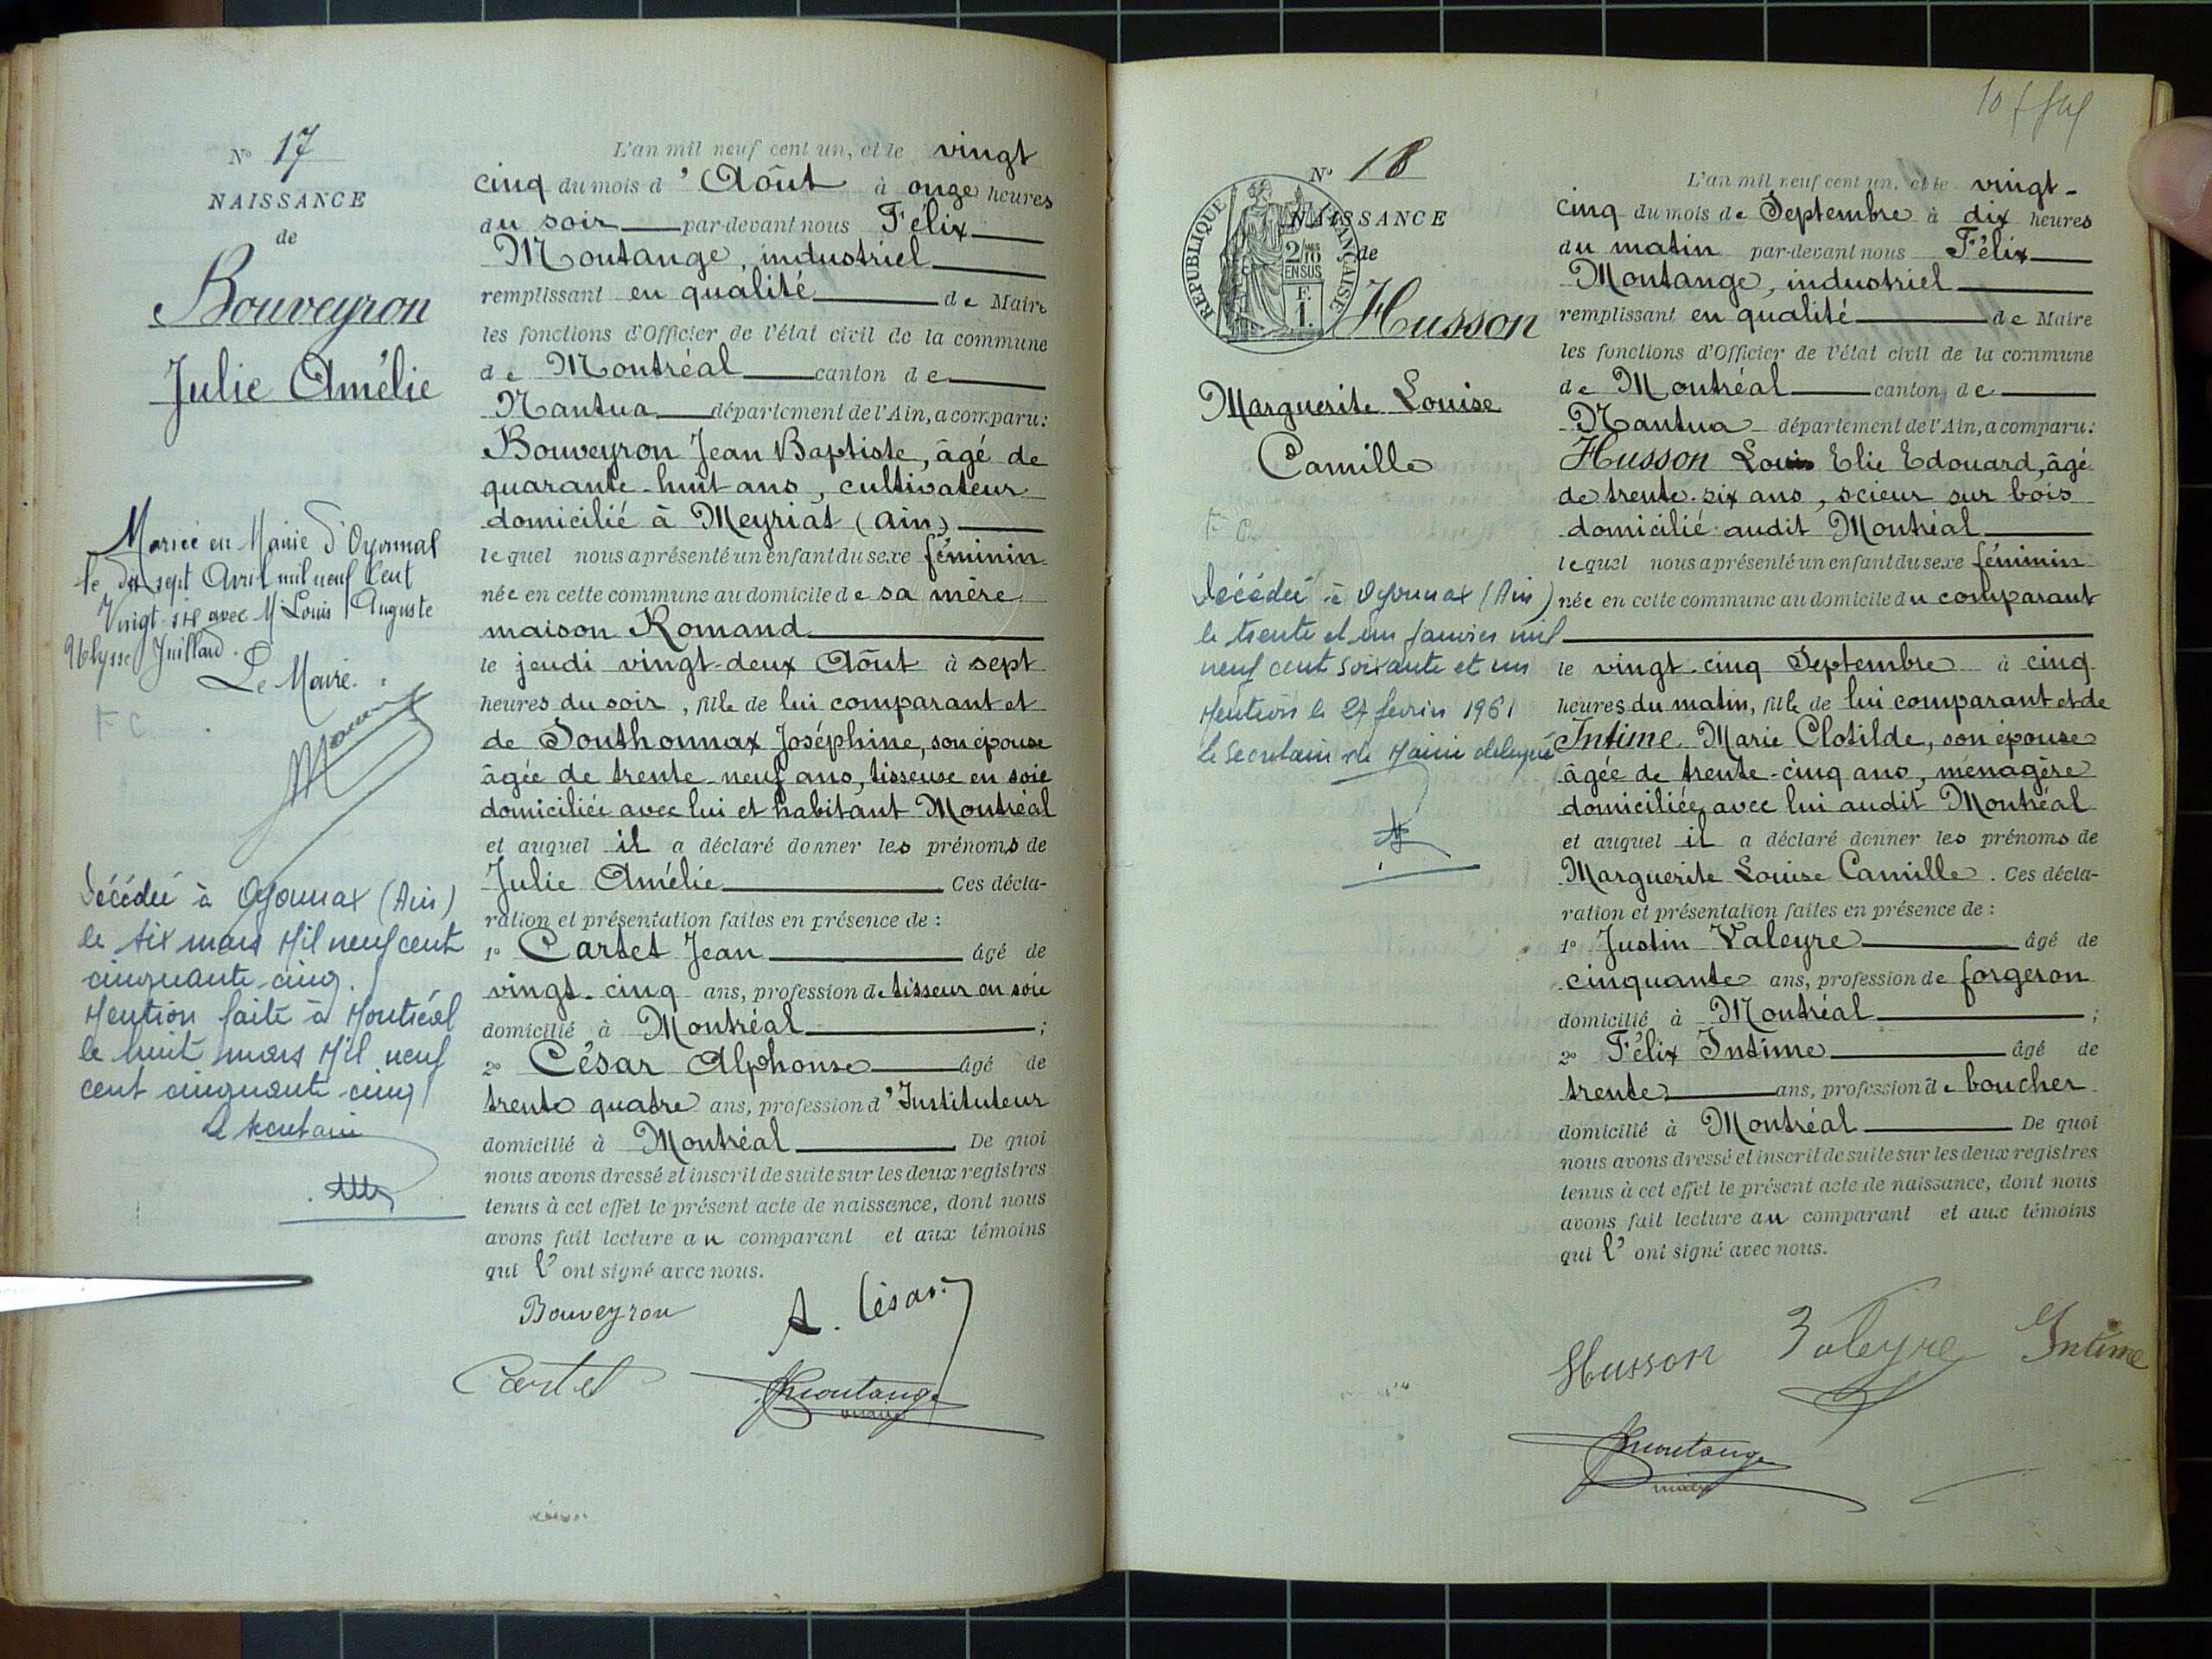 N° 17
NAISSANCE
de
Bouveyron
Julie Amélie
Mariée en Mairie d'Oyonnax
le dix sept Avril mil neuf Cent
Vingt-six avec Mr Louis Auguste
Ulysse Juillard.
Le Maire.
F C
Décédée à Oyonnax (Ain)
le six mars Mil neuf cent
cinquante-cinq.
Mention faite à Montréal
le huit mars Mil neuf
cent cinquante-cinq
Le secrétaire
L'an mil neuf cent un, et le vingt
cinq du mois d'Août à onze heures
du soir par-devant nous Félix
Montange, industriel
remplissant en qualité de Maire
les fonctions d'Officier de l'état civil de la commune
de Montréal canton de
Nantua département de l'Ain, a comparu:
Bouveyron Jean Baptiste, âgé de
quarante-huit ans, cultivateur
domicilié à Meyriat (Ain)
lequel nous a présenté un enfant du sexe féminin
née en cette commune au domicile de sa mère
maison Romand
le jeudi vingt-deux Août à sept
heures du soir, fille de lui comparant et
de Jouthonnax Joséphine, son épouse
âgée de trente-neuf ans, tisseuse en soie
domiciliée avec lui et habitant Montréal
et auquel il a déclaré donner les prénoms de
Julie Amélie Ces décla-
ration et présentation faites en présence de :
1° Cartet Jean âgé de
vingt-cinq ans, profession de tisseur en soie
domicilié à Montréal ;
2° César Alphonse âgé de
trente quatre ans, profession d'Instituteur
domicilié à Montréal De quoi
nous avons dressé et inscrit de suite sur les deux registres
tenus à cet effet le présent acte de naissance, dont nous
avons fait lecture au comparant et aux témoins
qui l'ont signé avec nous.
Bouveyron A. César
Cartet Montange
maire
N° 18
NAISSANCE
de
REPUBLIQUE FRANÇAISE
2/10
EN SUS
F.
1.
Husson
Marguerite Louise
Camille
F C.
Décédée à Oyonnax (Ain)
le trente et un janvier mil
neuf cent soixante et un
Mention le 27 février 1961
Le Secrétaire de Mairie délégué
L'an mil neuf cent un, et le vingt-
cinq du mois de Septembre à dix heures
du matin par-devant nous Félix
Montange, industriel
remplissant en qualité de Maire
les fonctions d'Officier de l'état civil de la commune
de Montréal canton de
Nantua département de l'Ain, a comparu:
Husson Louis Elie Edouard, âgé
de trente-six ans, scieur sur bois
domicilié audit Montréal
lequel nous a présenté un enfant du sexe féminin
née en cette commune au domicile du comparant
le vingt-cinq Septembre à cinq
heures du matin, fille de lui comparant et de
Intime Marie Clotilde, son épouse
âgée de trente-cinq ans, ménagère
domiciliée avec lui audit Montréal
et auquel il a déclaré donner les prénoms de
Marguerite Louise Camille. Ces décla-
ration et présentation faites en présence de :
1° Justin Valeyre âgé de
cinquante ans, profession de forgeron
domicilié à Montréal ;
2° Félix Intime âgé de
trente ans, profession de boucher
domicilié à Montréal De quoi
nous avons dressé et inscrit de suite sur les deux registres
tenus à cet effet le présent acte de naissance, dont nous
avons fait lecture au comparant et aux témoins
qui l'ont signé avec nous.
Husson Valeyre Intime
Montange
maire